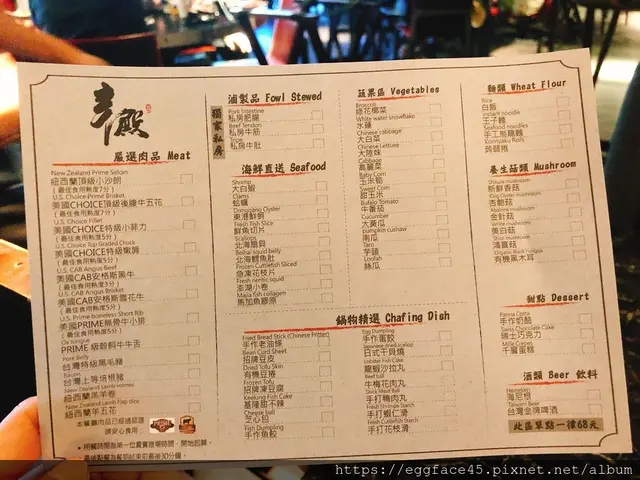 嚴選肉品 Meat
New Zealand Prime Sirloin
紐西蘭頂級小沙朗
(最佳食用熟度7分)
U.S. Choice Prime Brisket
美國CHOICE頂級後腰牛五花
(最佳食用熟度7分)
U.S. Choice Fillet
美國CHOICE特級小菲力
(最佳食用熟度5分)
U.S. Choice Top Graded Chuck
美國CHOICE特級嫩肩
(最佳食用熟度5分)
U.S. CAB Angus Beef
美國CAB安格斯黑牛
(最佳食用熟度3分)
U.S. CAB Angus Brisket
美國CAB安格斯雪花牛
(最佳食用熟度5分)
U.S. Prime boneless Short Rib
美國PRIME無骨牛小排
(最佳食用熟度5分)
Ox tongue
PRIME 級穀飼牛舌
Pork Belly
台灣特級黑毛豬
Bacon
台灣上等培根豬
New Zealand Lamb
紐西蘭羔羊卷
New Zealand Lamb Flap slice
紐西蘭羊五花
本餐廳肉品已經過認證
請安心食用
▸用餐時間為第一位貴賓進場時間,開始起算。
最後點餐為餐期結束前最後30分鐘。
獨家私房
滷製品 Fowl Stewed
Pork Intestine
私房肥腸
Beef Tendon
私房牛筋
Tripe
私房牛肚
海鮮直送 Seafood
Shrimp
大白蝦
Clams
蛤蠣
Donggang Oyster
東港鮮蚵
Fresh Fish Slice
鮮魚切片
Scallops
北海扇貝
Beihai squid belly
北海鱈魚肚
Frozen Cuttlefish Sliced
急凍花枝片
Fresh neritic squid
澎湖小卷
Majia fish collagen
馬加魚膠原
蔬果區 Vegetables
Broccoli
綠花椰菜
White water snowflake
水蓮
Chinese cabbage
大白菜
Chinese Lettuce
大陸妹
Cabbage
高麗菜
Baby Corn
玉米筍
Sweet Corn
甜玉米
Bufalo Tomato
牛番茄
Cucumber
大黃瓜
pumpkin cushaw
南瓜
Taro
芋頭
Loofah
絲瓜
麵類 Wheat Flour
Rice
白飯
Instant noodle
王子麵
Seafood noodles
手工烏龍麵
Konnjaku Rolls
蒟蒻捲
養生菇類 Mushroom
Shitura mushroom
新鮮香菇
杏鮑菇
金針菇
White mushroom
美白菇
鴻喜菇
Organic Black Fungus
有機黑木耳
甜點 Dessert
Panna Cotta
手作奶酪
Swiss Chocolate Cake
瑞士巧克力
Mille Crepes
千層蛋糕
鍋物精選 Chafing Dish
Fried Bread Stick (Chinese Fritter)
手作老油條
Bean Curd Sheet
招牌豆皮
Dried Tofu Skin
有機豆捲
Frozen Tofu
招牌凍豆腐
Keelung Fish Cake
基隆甜不辣
Cheese ball
芝心包
Fish Dumpling
手作魚餃
Egg Dumpling
手作蛋餃
Japanese dried scallop
日式干貝燒
Lobster Fish Cake
龍蝦沙拉丸
Beef ball
牛梅花肉丸
Duck Meat Ball
手打鴨肉丸
Fresh Shrimps Starch
手打蝦仁滑
Fresh Cuttlefish Starch
手打花枝滑
酒類 Beer 飲料
Heineken
海尼根
Taiwan Beer
台灣金牌啤酒
此區單點一律68元
https://eggface45.pixnet.net/album